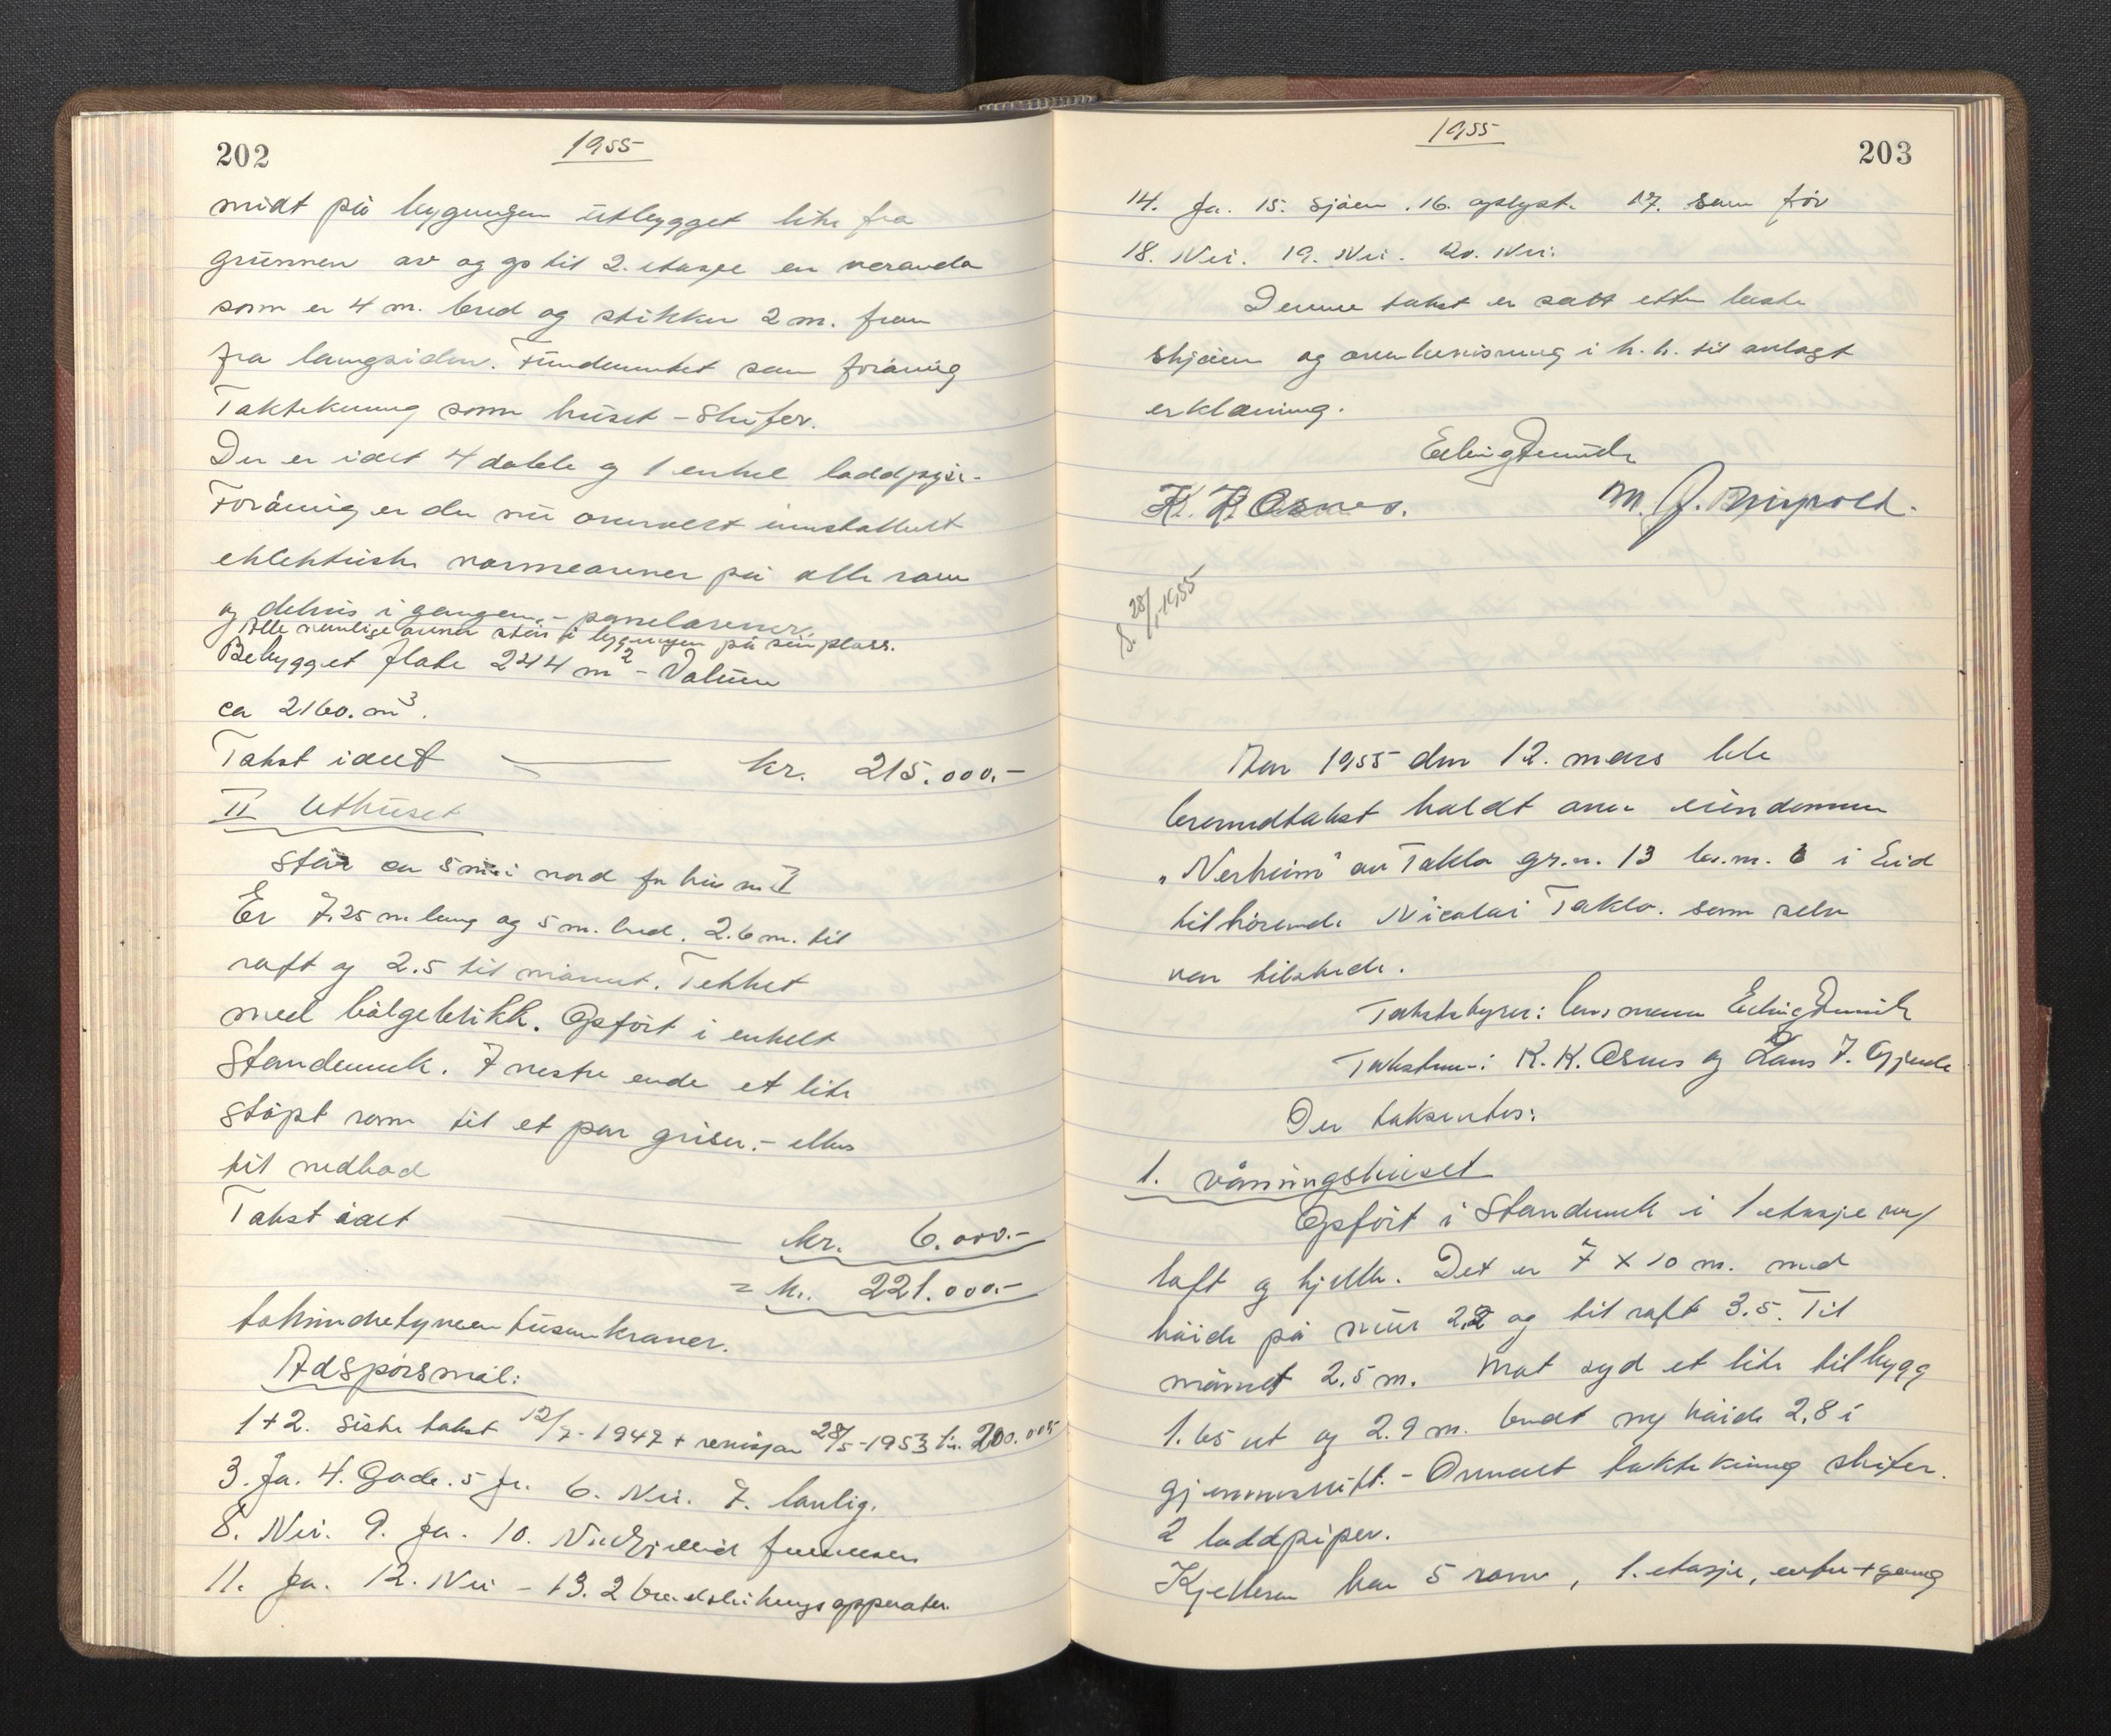 202
1955
midt på bygningen utbygget like fra
grunnen av og op til 2. etasje en veranda
som er 4 m. bred og stikker 2 m. fram
fra langsiden. Fundamentet som foråning
Taktekning som huset - skifer.
Der er idet 4 doble og 1 enkel loddpipe.
Foråning er der nu overalt innstallert
eklektriske varmeovner på alle rom
og delvis i gangen, - panelovner.
Alle vanlige ovner står i bygningen på sin plass.
Bebygget flate 244 m2 - Volum
ca 2160. m3.
Takst idet kr. 215.000.-
II Uthuset
står ca 5 m i nord for hus nr I
Er 7.25 m lang og 5 m. bred. 2.6 m. til
raft og 2.5 til mønnet. Tekket
med bølgeblikk. Opført i enkelt
standerverk. I vestre ende et lite
støpt rom til et par griser. - ellers
til vedbod
Takst idet kr. 6.000.-
= kr. 221.000.-
tohundreogtyveen tusen kroner.
Adspørsmål:
1+2. Siste takst 12/7-1947 + revisjon 28/5-1953 kr. 200.000
3. Ja. 4. Gode. 5 Ja. 6. Nei. 7. lovlig.
8. Nei. 9. Ja. 10.
11. Ja. 12. Nei - 13. 2 brandslukningsapparater.
1955
203
14. Ja. 15. Sjøen. 16. oplyst. 17. som før
18. Nei. 19. Nei. 20. Nei.
Denne takst er satt etter beste
skjøn og overbevisning i h. h. til avlagt
erklæring.
K. K. Osnes.
M. J.
S. 28/1-1955
Aar 1955 den 12. mars ble
branndtakst holdt over eiendommen
"Nerheim" av Taklo gr.n. 13 br.n. 6 i Eid
tilhørende Nicolai Taklo. som selv
var tilstede.
Takstbyrer: lensmann
Takstmenn: K. K. Osnes og Lars J. Gjerde
Der taksertes:
1. våningshuset
Opført i standerverk i 1 etasje m/
loft og kjeller. Det er 7 x 10 m. med
høide på mur 2,2 og til raft 3.5. Til
mønnet 2,5 m. Mot syd et lite tilbygg
1.65 ut og 2.9 m. bredt og høide 2,8 i
gjennemsnitt. - Overalt taktekning skifer.
2 loddpiper.
Kjelleren har 5 rom, 1. etasje, entre + gang